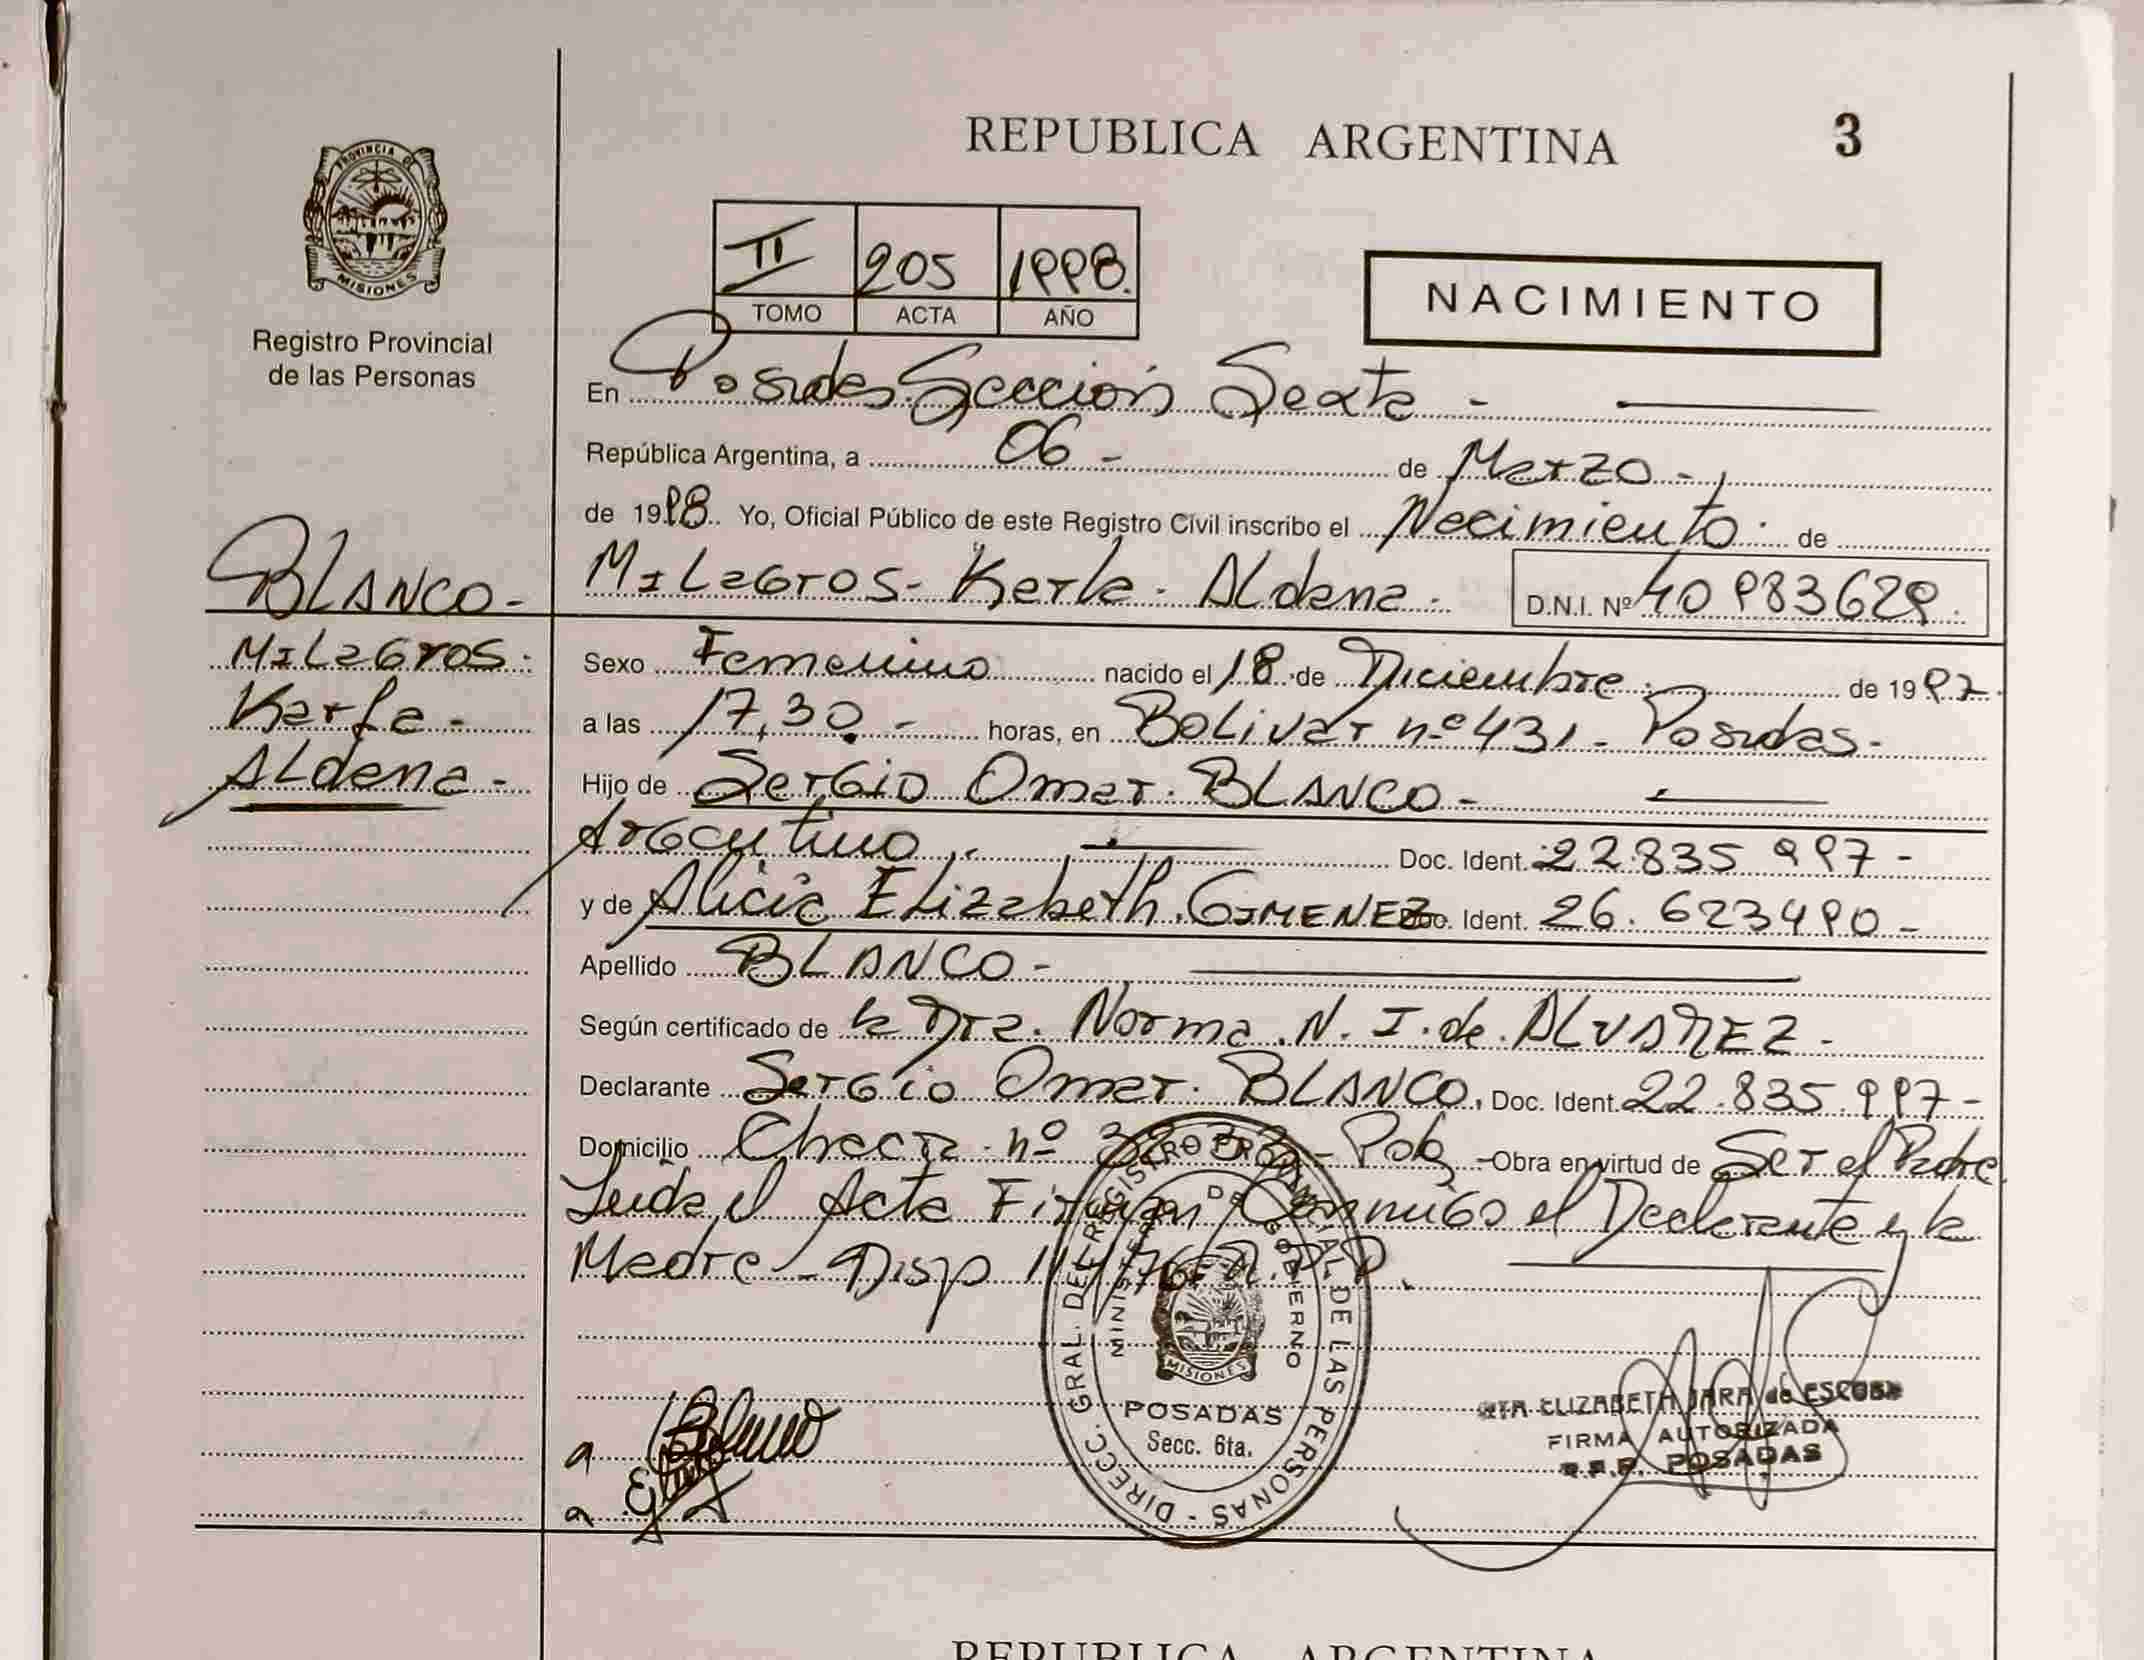 REPUBLICA ARGENTINA
3
PROVINCIA DE
MISIONES
Registro Provincial
de las Personas
II 205 1998.
TOMO ACTA AÑO
NACIMIENTO
En Posadas Sección Sexta -
República Argentina, a 06 - de Marzo -
de 1998. Yo, Oficial Público de este Registro Civil inscribo el Nacimiento de
MILAGROS - Karla - Aldana - D.N.I. Nº 40983629.
BLANCO -
MILAGROS -
Karla -
Aldana -
Sexo Femenino nacido el 18 de Diciembre de 1997.
a las 17,30 - horas, en Bolivar nº 431 - Posadas -
Hijo de Sergio Omar BLANCO -
Argentino - Doc. Ident. 22.835.997 -
y de Alicia Elizabeth GIMENEZ Doc. Ident. 26.623490 -
Apellido BLANCO -
Según certificado de la Dra. Norma N. I. de ALVAREZ -
Declarante Sergio Omar BLANCO, Doc. Ident. 22.835.997 -
Domicilio nº - Obra en virtud de Ser el Padre
Leida el Acta Firman Conmigo el Declarante y la
Madre - Disp 114/76
DIRECC. GRAL. DEL REGISTRO PROVINCIAL DE LAS PERSONAS -
MINISTERIO DE GOBIERNO
MISIONES
POSADAS
Secc. 6ta.
a Blanco
a
ELIZABETH JARA de
FIRMA AUTORIZADA
POSADAS
REPUBLICA ARGENTINA